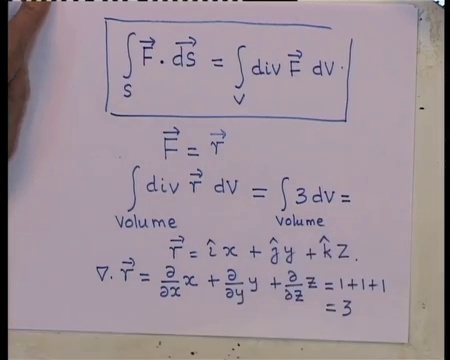 ∫_S F⃗ · ds⃗ = ∫_V div F⃗ dV.
F⃗ = r⃗
∫_volume div r⃗ dV = ∫_volume 3 dv =
r⃗ = î x + ĵ y + k̂ z.
∇. r⃗ = ∂/∂x x + ∂/∂y y + ∂/∂z z = 1+1+1
= 3